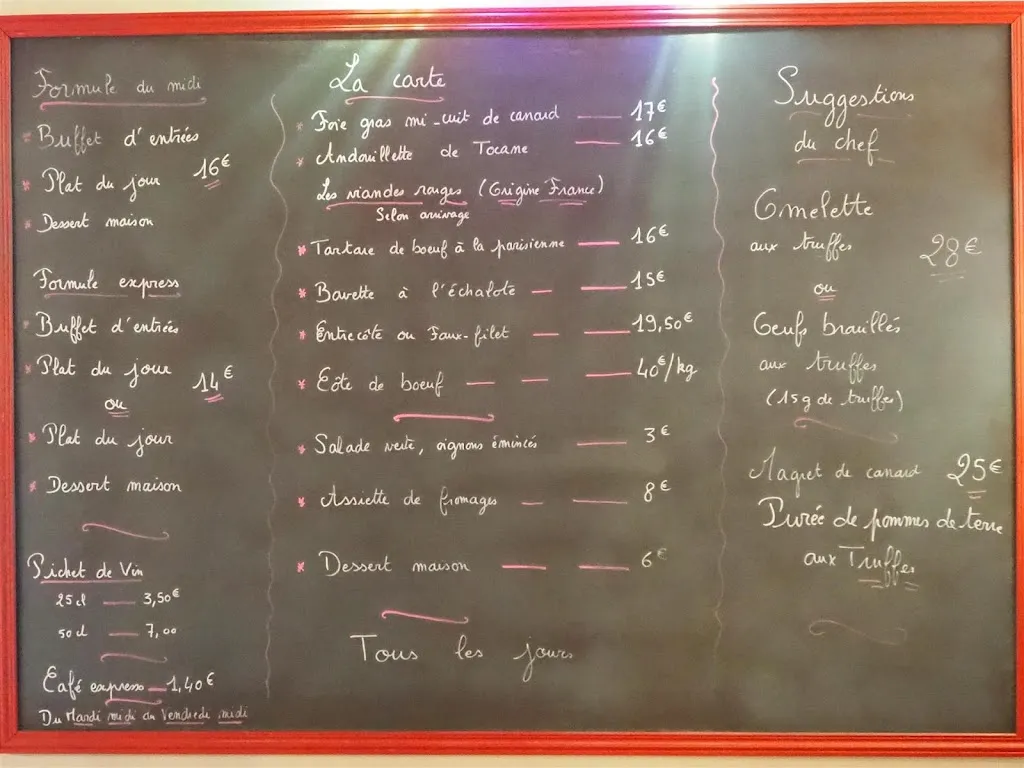 Formule du midi
Buffet d'entrées
Plat du jour 16€
Dessert maison
Formule express
Buffet d'entrées
Plat du jour 14€
ou
Plat du jour
Dessert maison
Pichet de Vin
25 cl 3,50€
50 cl 7,00
Café express 1,40€
Du Mardi midi au Vendredi midi
La carte
Foie gras mi-cuit de canard 17€
Andouillette de Tocane 16€
Les viandes rouges (Origine France)
Selon arrivage
Tartare de boeuf à la parisienne 16€
Bavette à l'échalote 15€
Entrecôte ou Faux-filet 19,50€
Côte de boeuf 40€/kg
Salade verte, oignons émincés 3€
Assiette de fromages 8€
Dessert maison 6€
Tous les jours
Suggestions
du chef
Omelette
aux truffes 28€
ou
Oeufs brouillés
aux truffes
(15g de truffes)
Magret de canard 25€
Purée de pommes de terre
aux Truffes